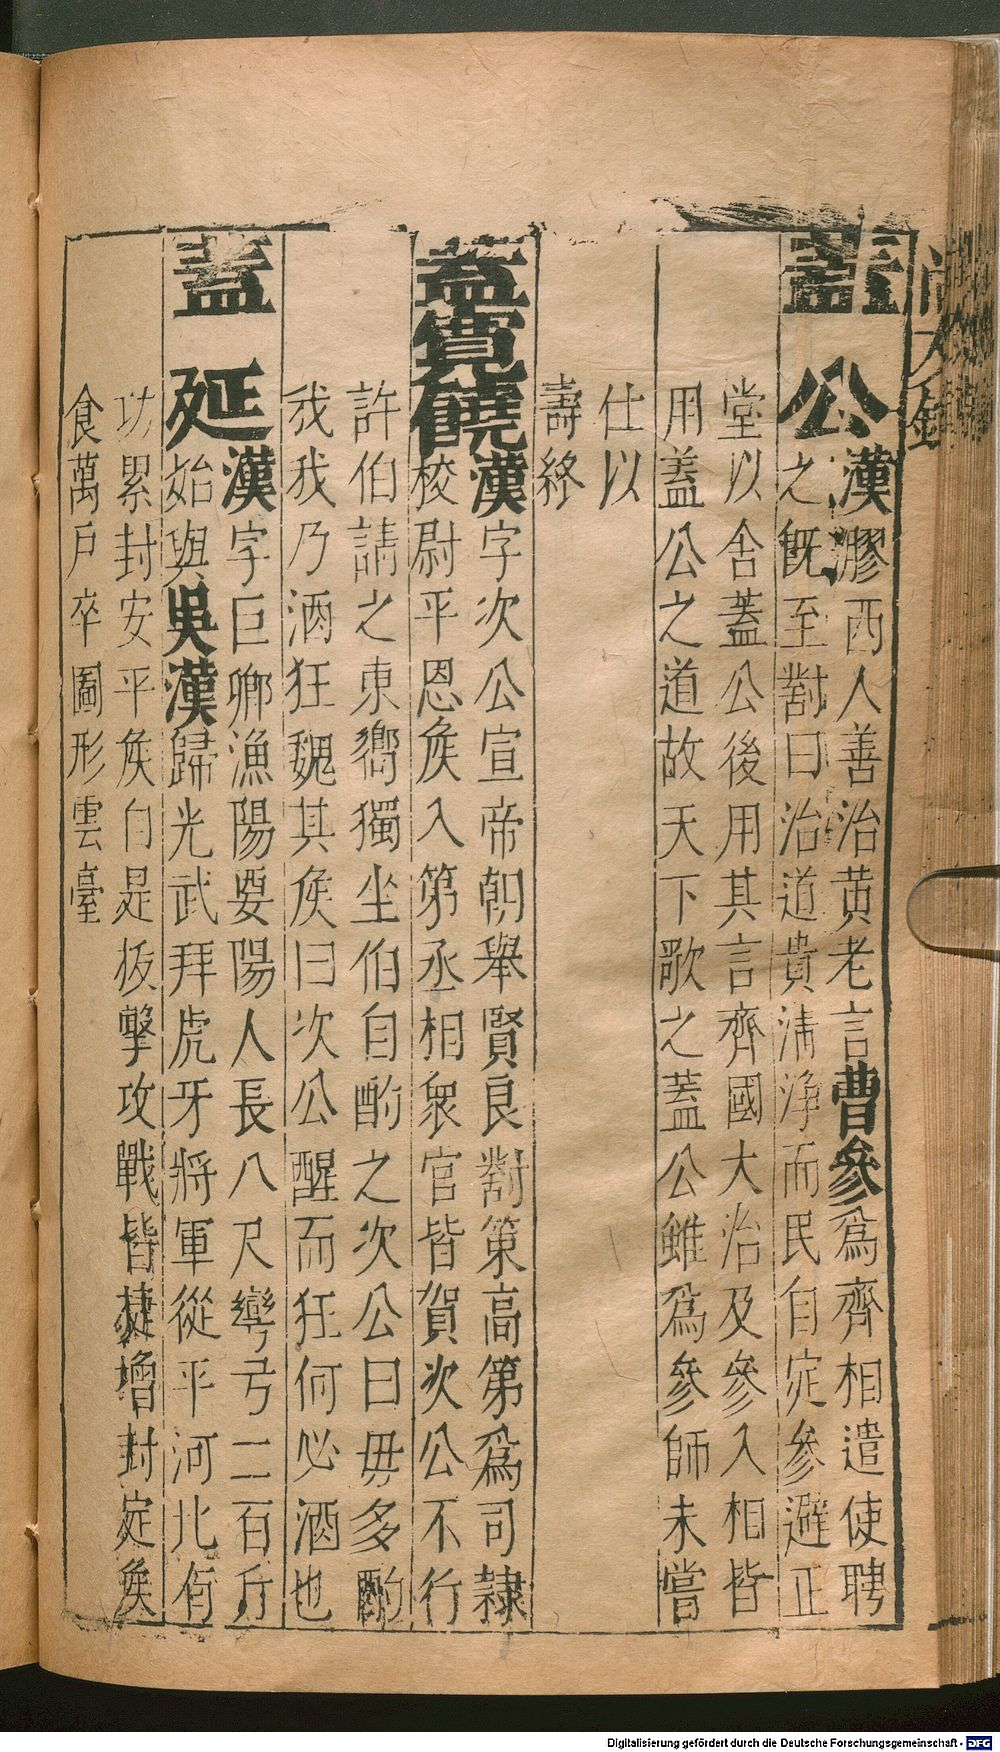 蓋公漢膠西人善治黄老言曹參爲齊相遣使聘
之旣至對曰治道貴清淨而民自定參避正
堂以舎蓋公後用其言齊國大治及參入相皆
用蓋公之道故天下歌之蓋公雖爲參師未嘗
仕以
壽終
蓋寬饒漢字次公宣帝朝舉賢良對策高第爲司隸
校尉平恩侯入第丞相衆官皆賀次公不行
許伯請之東嚮獨坐伯自酌之次公曰毋多酌
我我乃酒狂魏其侯曰次公醒而狂何必酒也
蓋延漢字巨卿漁陽要陽人長八尺彎弓二百斤
始與吳漢歸光武拜虎牙將軍從平河北有
功累封安平侯自是
擊攻戰皆捷增封定侯
食萬戶卒圖形雲臺
Digitalisierung gefördert durch die Deutsche Forschungsgemeinschaft - DFG